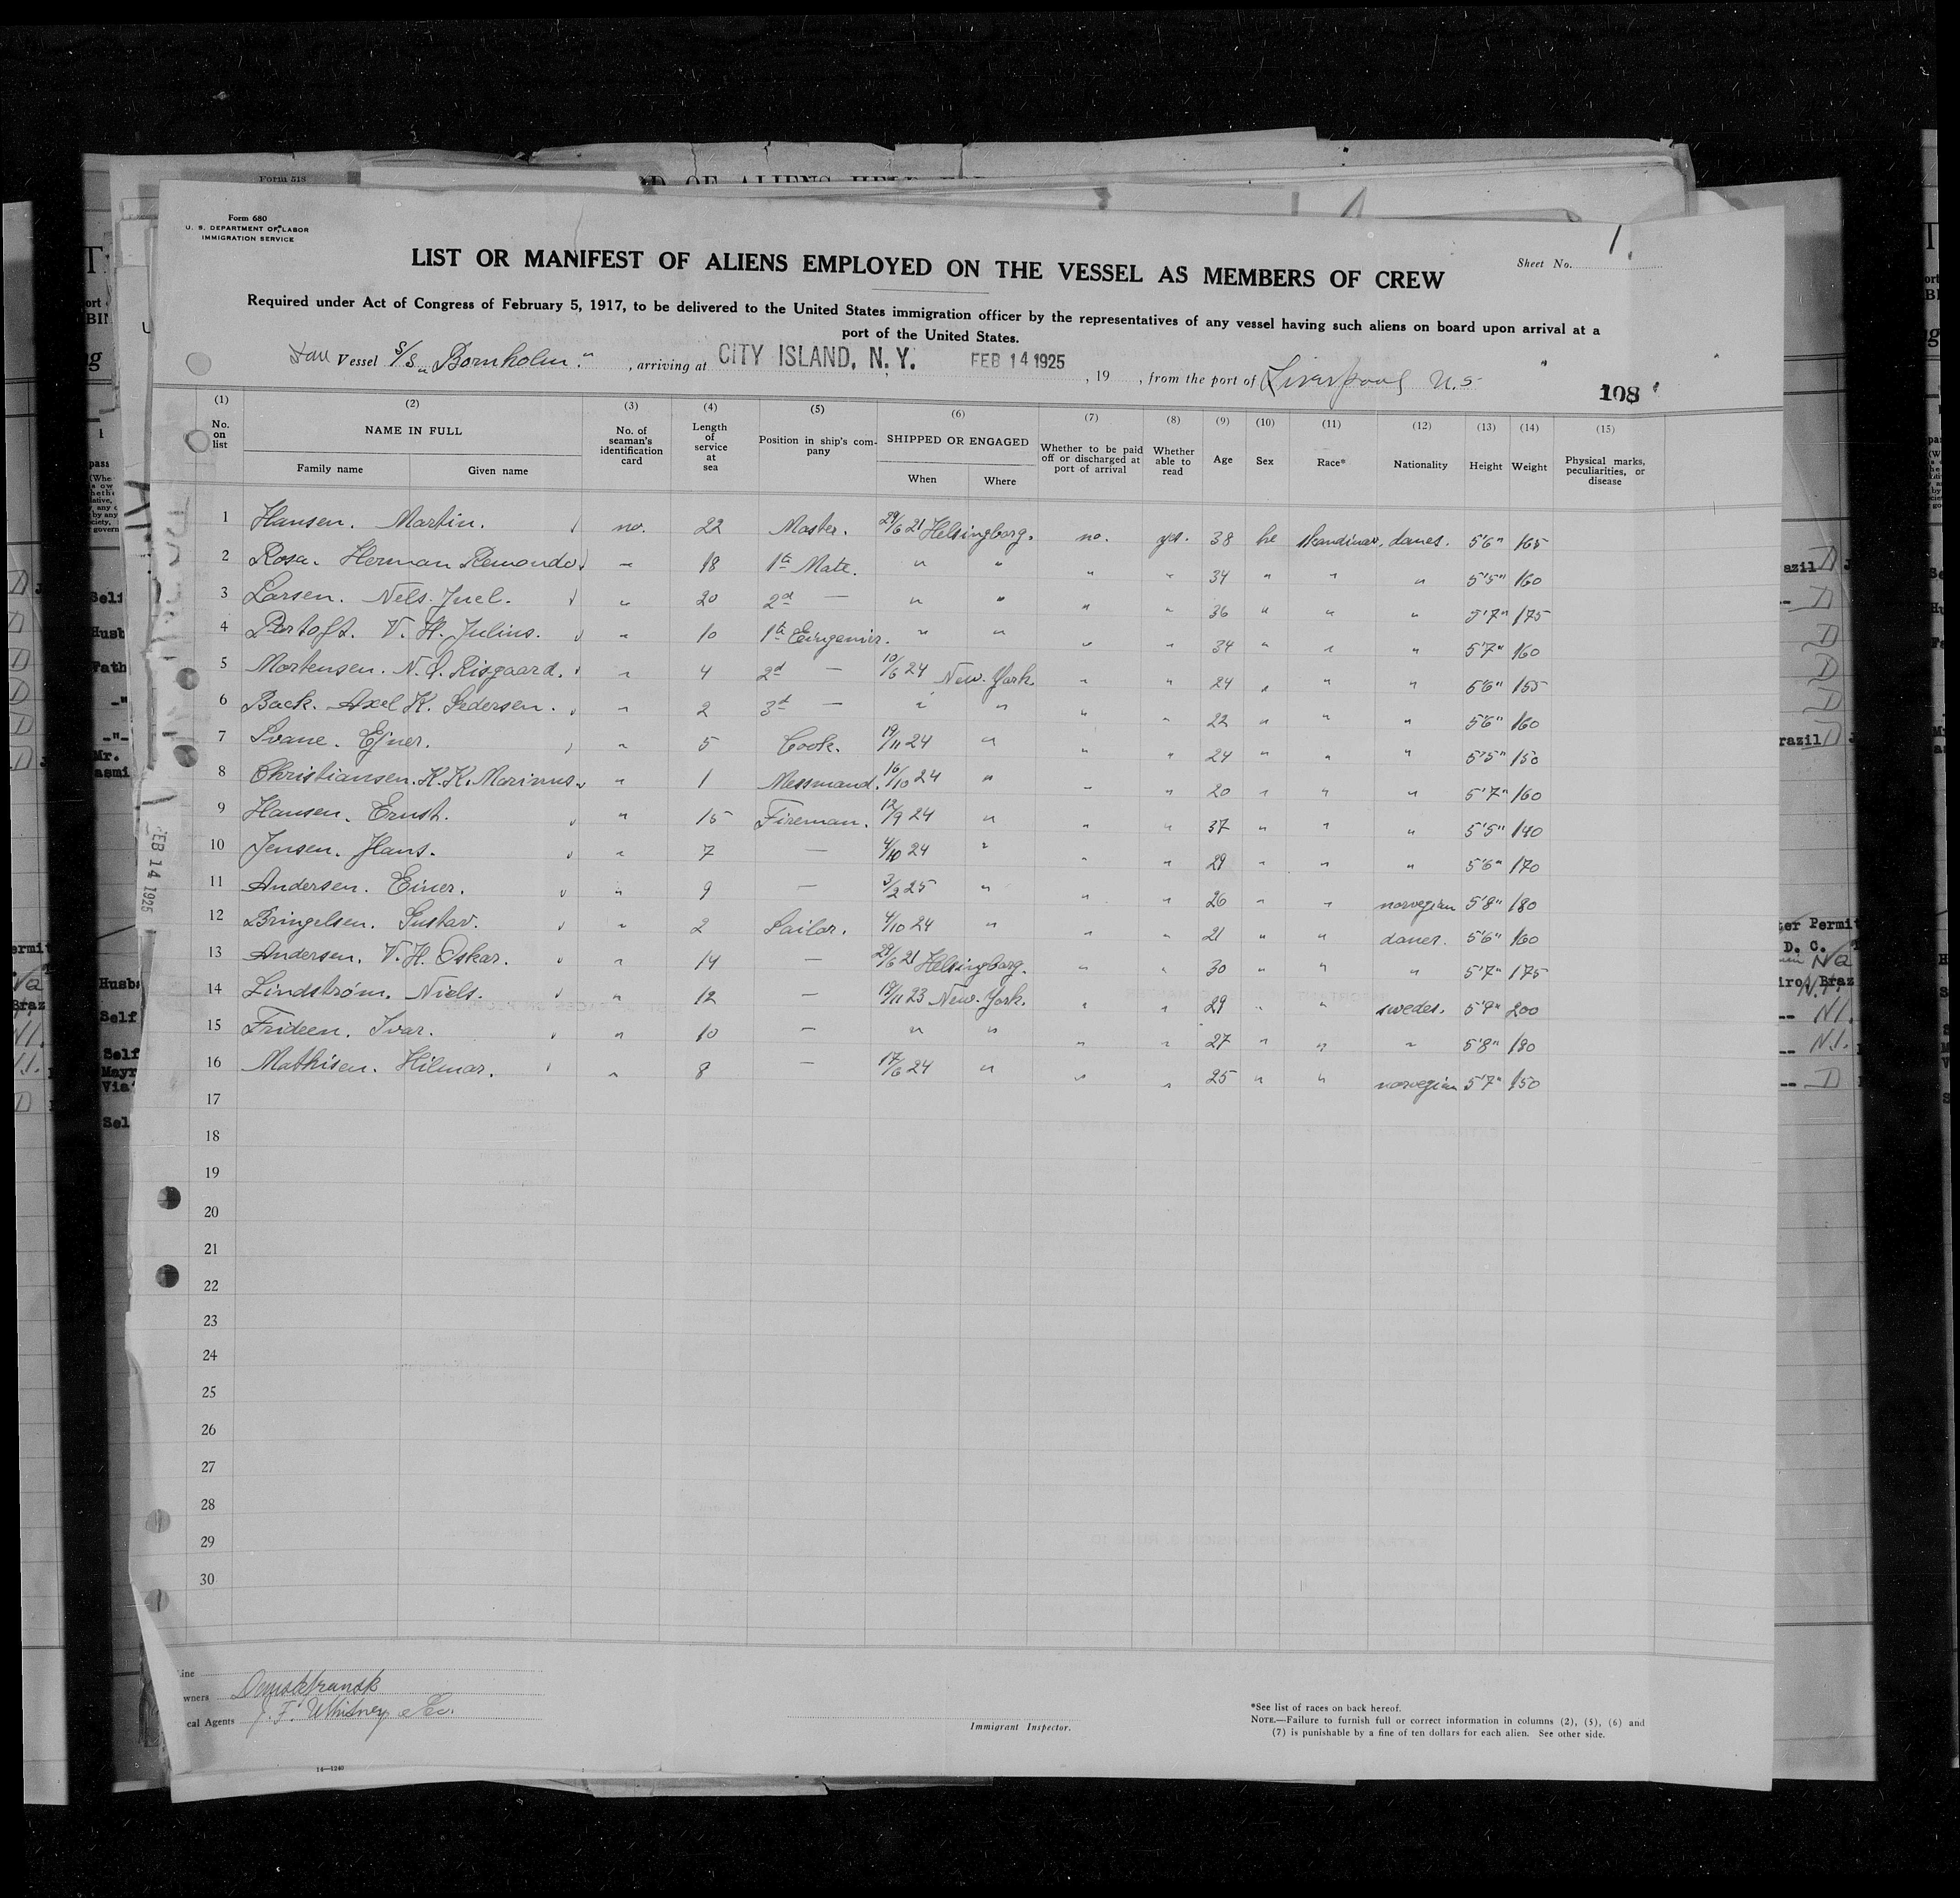 Form 680
U. S. DEPARTMENT OF LABOR
IMMIGRATION SERVICE
Sheet No. 1.
LIST OR MANIFEST OF ALIENS EMPLOYED ON THE VESSEL AS MEMBERS OF CREW
Required under Act of Congress of February 5, 1917, to be delivered to the United States immigration officer by the representatives of any vessel having such aliens on board upon arrival at a
port of the United States.
Dan Vessel S/S „Bornholm", arriving at CITY ISLAND, N. Y. FEB 14 1925, 19 , from the port of Liverpool N.S. 108
(1) (2) (3) (4) (5) (6) (7) (8) (9) (10) (11) (12) (13) (14) (15)
No. on list NAME IN FULL Family name Given name No. of seaman's identification card Length of service at sea Position in ship's company SHIPPED OR ENGAGED When Where Whether to be paid off or discharged at port of arrival Whether able to read Age Sex Race* Nationality Height Weight Physical marks, peculiarities, or disease
1 Hansen. Martin. no. 22 Master. 29/6 21 Helsingborg. no. yes. 38 he skandinav. danes. 5'6" 165
2 Rosa. Herman Remondo " 18 1te Mate. " " " " 34 " " " 5'5" 160
3 Larsen. Nels. Juel. " 20 2d — " " " " 36 " " " 5'7" 175
4 Pertoft. V. H. Julius. " 10 1te Eingenier. " " " " 34 " " " 5'7" 160
5 Mortensen. N. J. Risgaard. " 4 2d — 10/6 24 New-York. " " 24 " " " 5'6" 155
6 Back. Axel K. Pedersen. " 2 3d — " " " " 22 " " " 5'6" 160
7 Svane. Ejner. " 5 Cook. 19/11 24 " " " 24 " " " 5'5" 150
8 Christiansen. K. K. Marinus. " 1 Messmand. 16/10 24 " " " 20 " " " 5'7" 160
9 Hansen. Ernst. " 15 Fireman. 12/9 24 " " " 37 " " " 5'5" 140
10 Jensen. Hans. " 7 — 4/10 24 " " " 29 " " " 5'6" 170
11 Andersen. Einer. " 9 — 3/2 25 " " " 26 " " norwegian 5'8" 180
12 Bringelsen. Gustav. " 2 Sailor. 4/10 24 " " " 21 " " danes. 5'6" 160
13 Andersen. V. H. Oskar. " 14 — 29/6 21 Helsingborg. " " 30 " " " 5'7" 175
14 Lindström. Niels. " 12 — 19/11 23 New-York. " " 29 " " swedes. 5'9" 200
15 Frideen. Ivar. " 10 — " " " " 27 " " " 5'8" 180
16 Mathisen. Hilmar. " 8 — 17/6 24 " " " 25 " " norwegian 5'7" 150
17
18
19
20
21
22
23
24
25
26
27
28
29
30
FEB 14 1925
ine
wners
cal Agents J. F. Whitney & Co.
Immigrant Inspector.
*See list of races on back hereof.
NOTE.—Failure to furnish full or correct information in columns (2), (5), (6) and
(7) is punishable by a fine of ten dollars for each alien. See other side.
14—1240